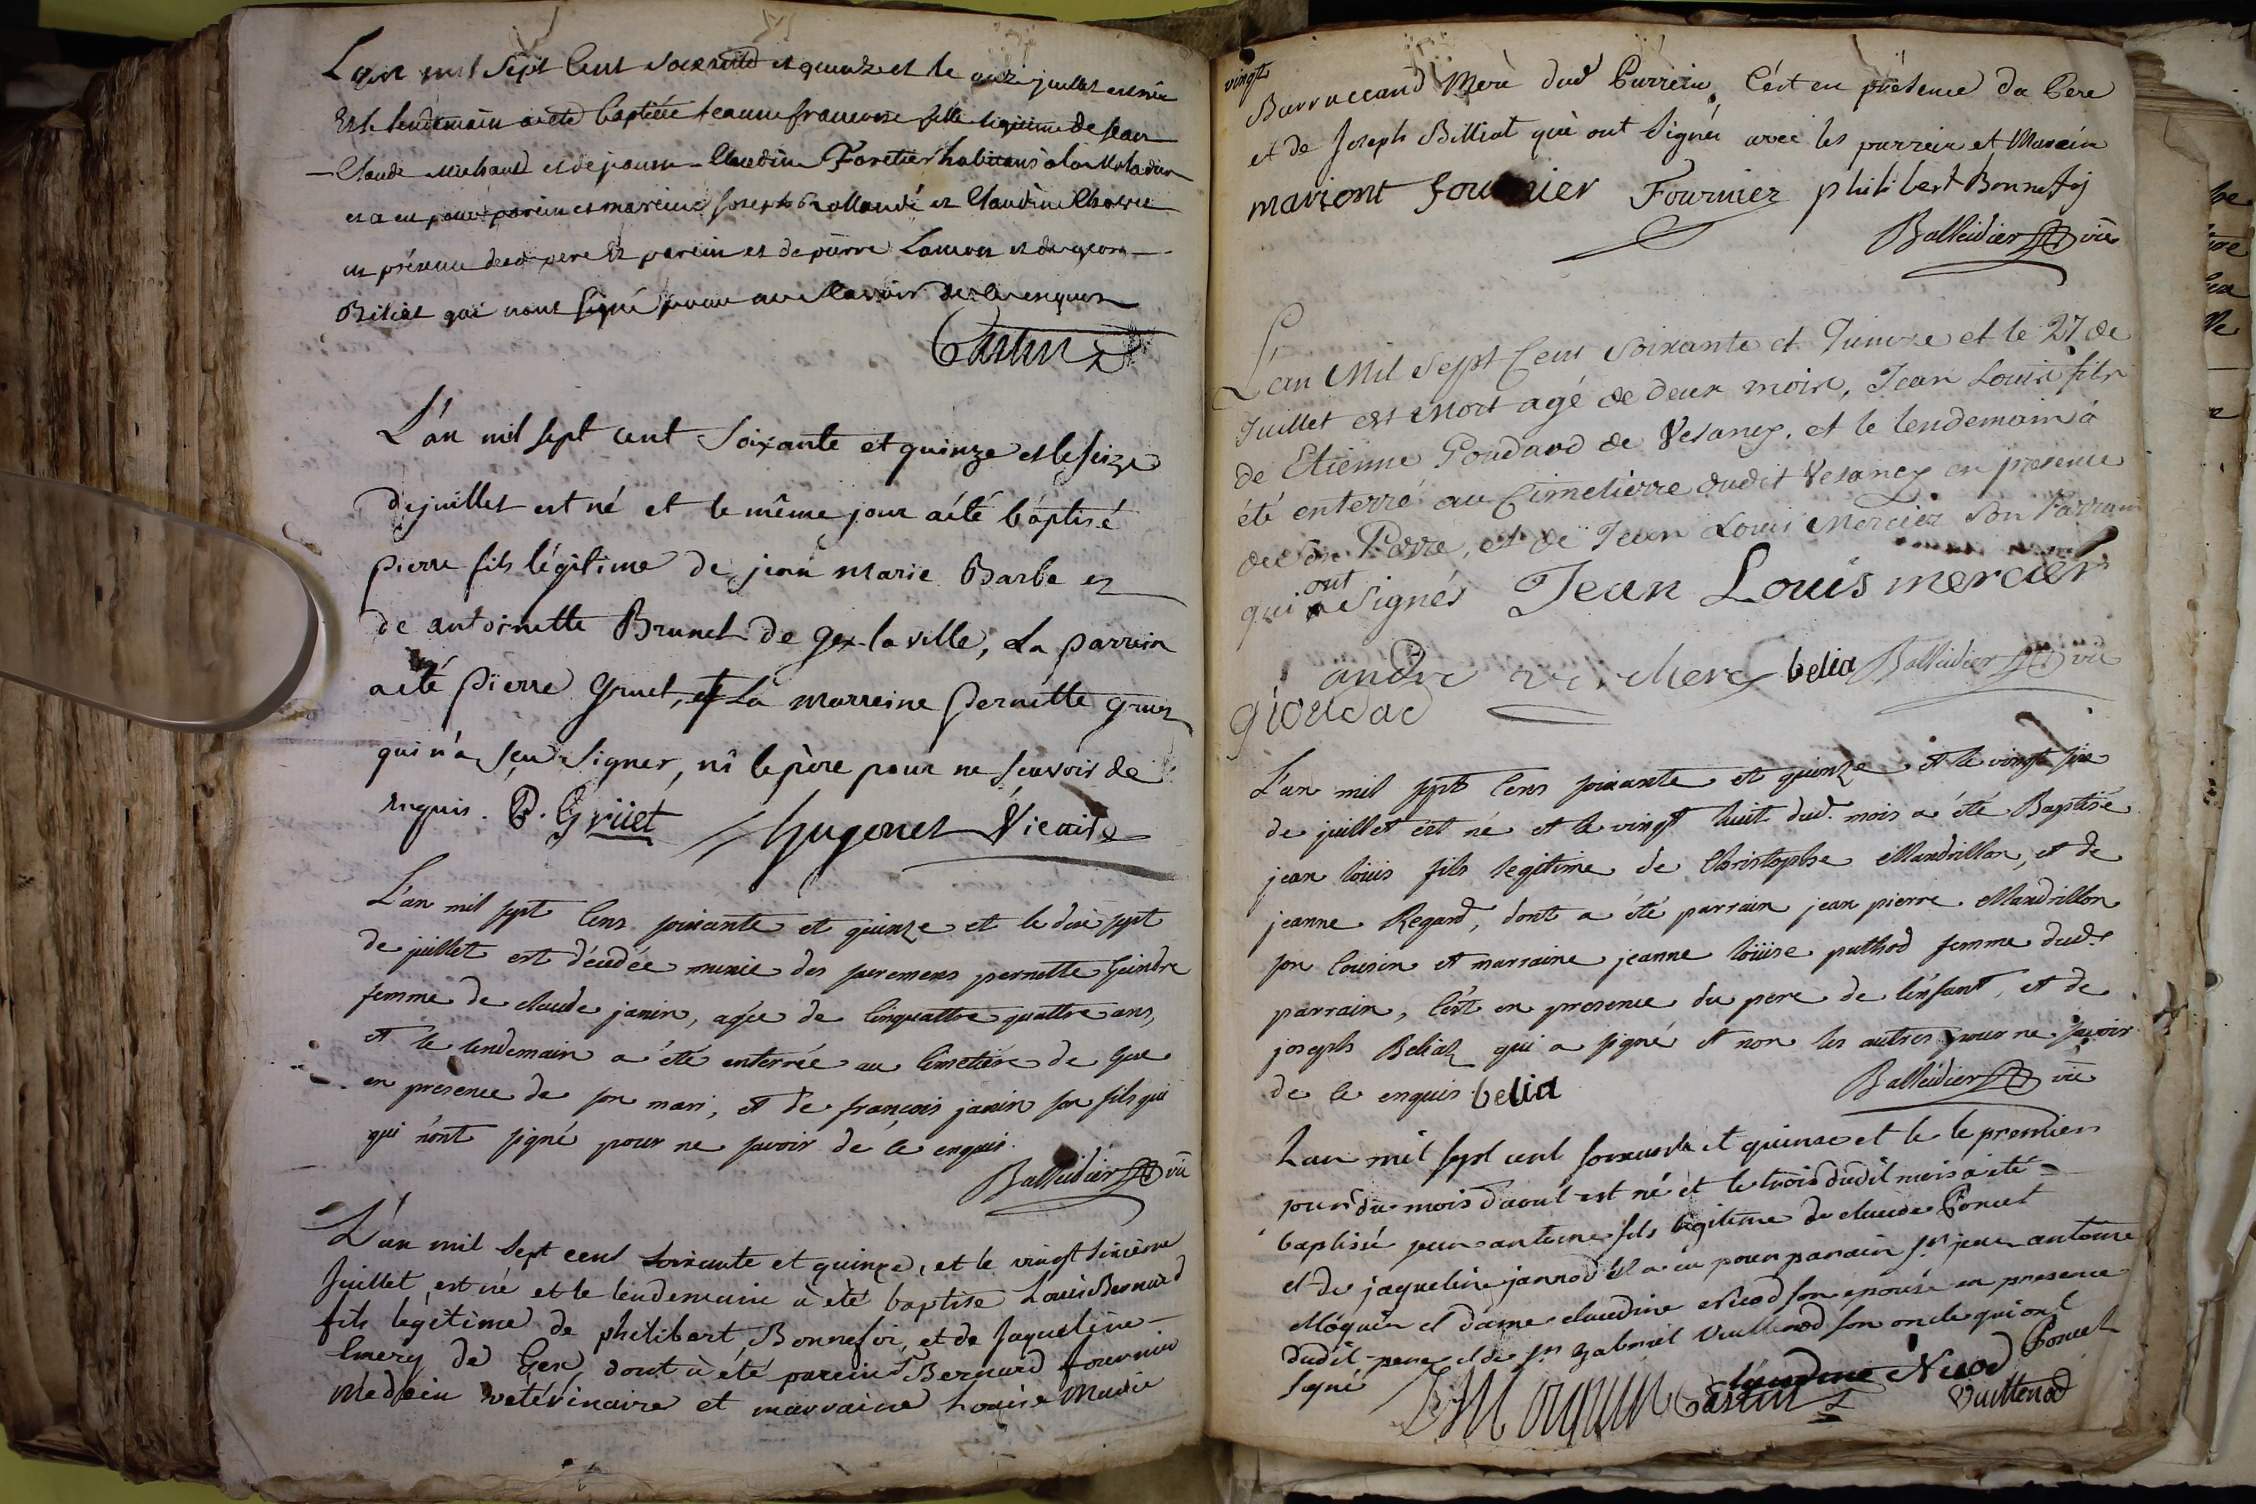 L'an mil Sept Cent soixante et quinze et le onze juillet est née
Et le lendemain a été Baptisée Jeanne françoise fille légitime de Jean
Claude Michaud et de jeanne Claudine Foretier habitans à la
et a eu pour parein et mareine Joseph et Claudine
en présence du pere et parein et de pierre et de
Biliat qui n'ont signé pour ne le savoir de ce enquis
Castin
L'an mil sept cent Soixante et quinze et le seize
de juillet est né et le même jour a été baptisé
pierre fils légitime de jean Marie Barbe et
de antoinette Brunet de gex la ville, Le parrein
a été pierre Gruet, et La marreine pernette gruet
qui n'a sçu signer, ni le père pour ne sçavoir de
enquis. P. Grüet Hugonet Vicaire
L'an mil sept cens soixante et quinze et le dix sept
de juillet est décédée munie des sacremens pernette Gindre
femme de claude janin, agée de cinquattre quattre ans,
et le lendemain a été enterrée au cimetière de Gex
en presence de son mari, et de françois janin son fils qui
qui n'ont signé pour ne savoir de ce enquis.
Balleidier vic
L'an mil sept cent soixante et quinze, et le vingt sixième
Juillet, est né et le lendemain a été baptisé Louis Bernard
fils légitime de philibert Bonnefoi, et de Jaqueline
Emery de Gex, dont à été parein Sr Bernard fournier
Médecin vétérinaire et marraine Louise Marie
vingt
Burraccand Mere dud Parrein, C'est en présence du Pere
et de Joseph Billiat qui ont signés avec les parrein et Mareine
mariont fournier Fournier philibert Bonnefoj
Balleidier vic
L'an Mil Sept Cent Soixante et Quinze et le 27 de
Juillet est Mort agé de deux mois, Jean Louis fils
de Etienne Goudard de Vesancy, et le lendemain à
été enterré au Cimetierre dudit Vesancy en presence
du dit Père, et de Jean Louis Mercier son Parrain
ont
qui a Signés Jean Louis mercier
andre verchere belia Balleidier vic
gioudad
L'an mil sept cens soixante et quinze et le vingt six
de juillet est né et le vingt huit dud. mois a été Baptisé
jean louis fils legitime de Christophe Mandrillon, et de
jeanne Regard, dont a été parrain jean pierre Mandrillon
son cousin et marraine jeanne loüise puthod femme dud.
parrain, C'est en presence du pere de l'enfant, et de
joseph Beliat qui a signé et non les autres pour ne savoir
de ce enquis. belia Balleidier vic
Lan mil sept cent soixante et quinze et le le premier
jour du mois d'aout est né et le trois dudit mois a été
baptisé jean antoine fils legitime de claude Poncet
et de jaqueline jannod il a eu pour parain sr jean antoine
Moquin et dame claudine Nicod son epouse en presence
dudit pere et de sr gabriel Vuillenod son oncle qui ont
signé claudine Nicod Poncet
Moquin Castin Vuillenod